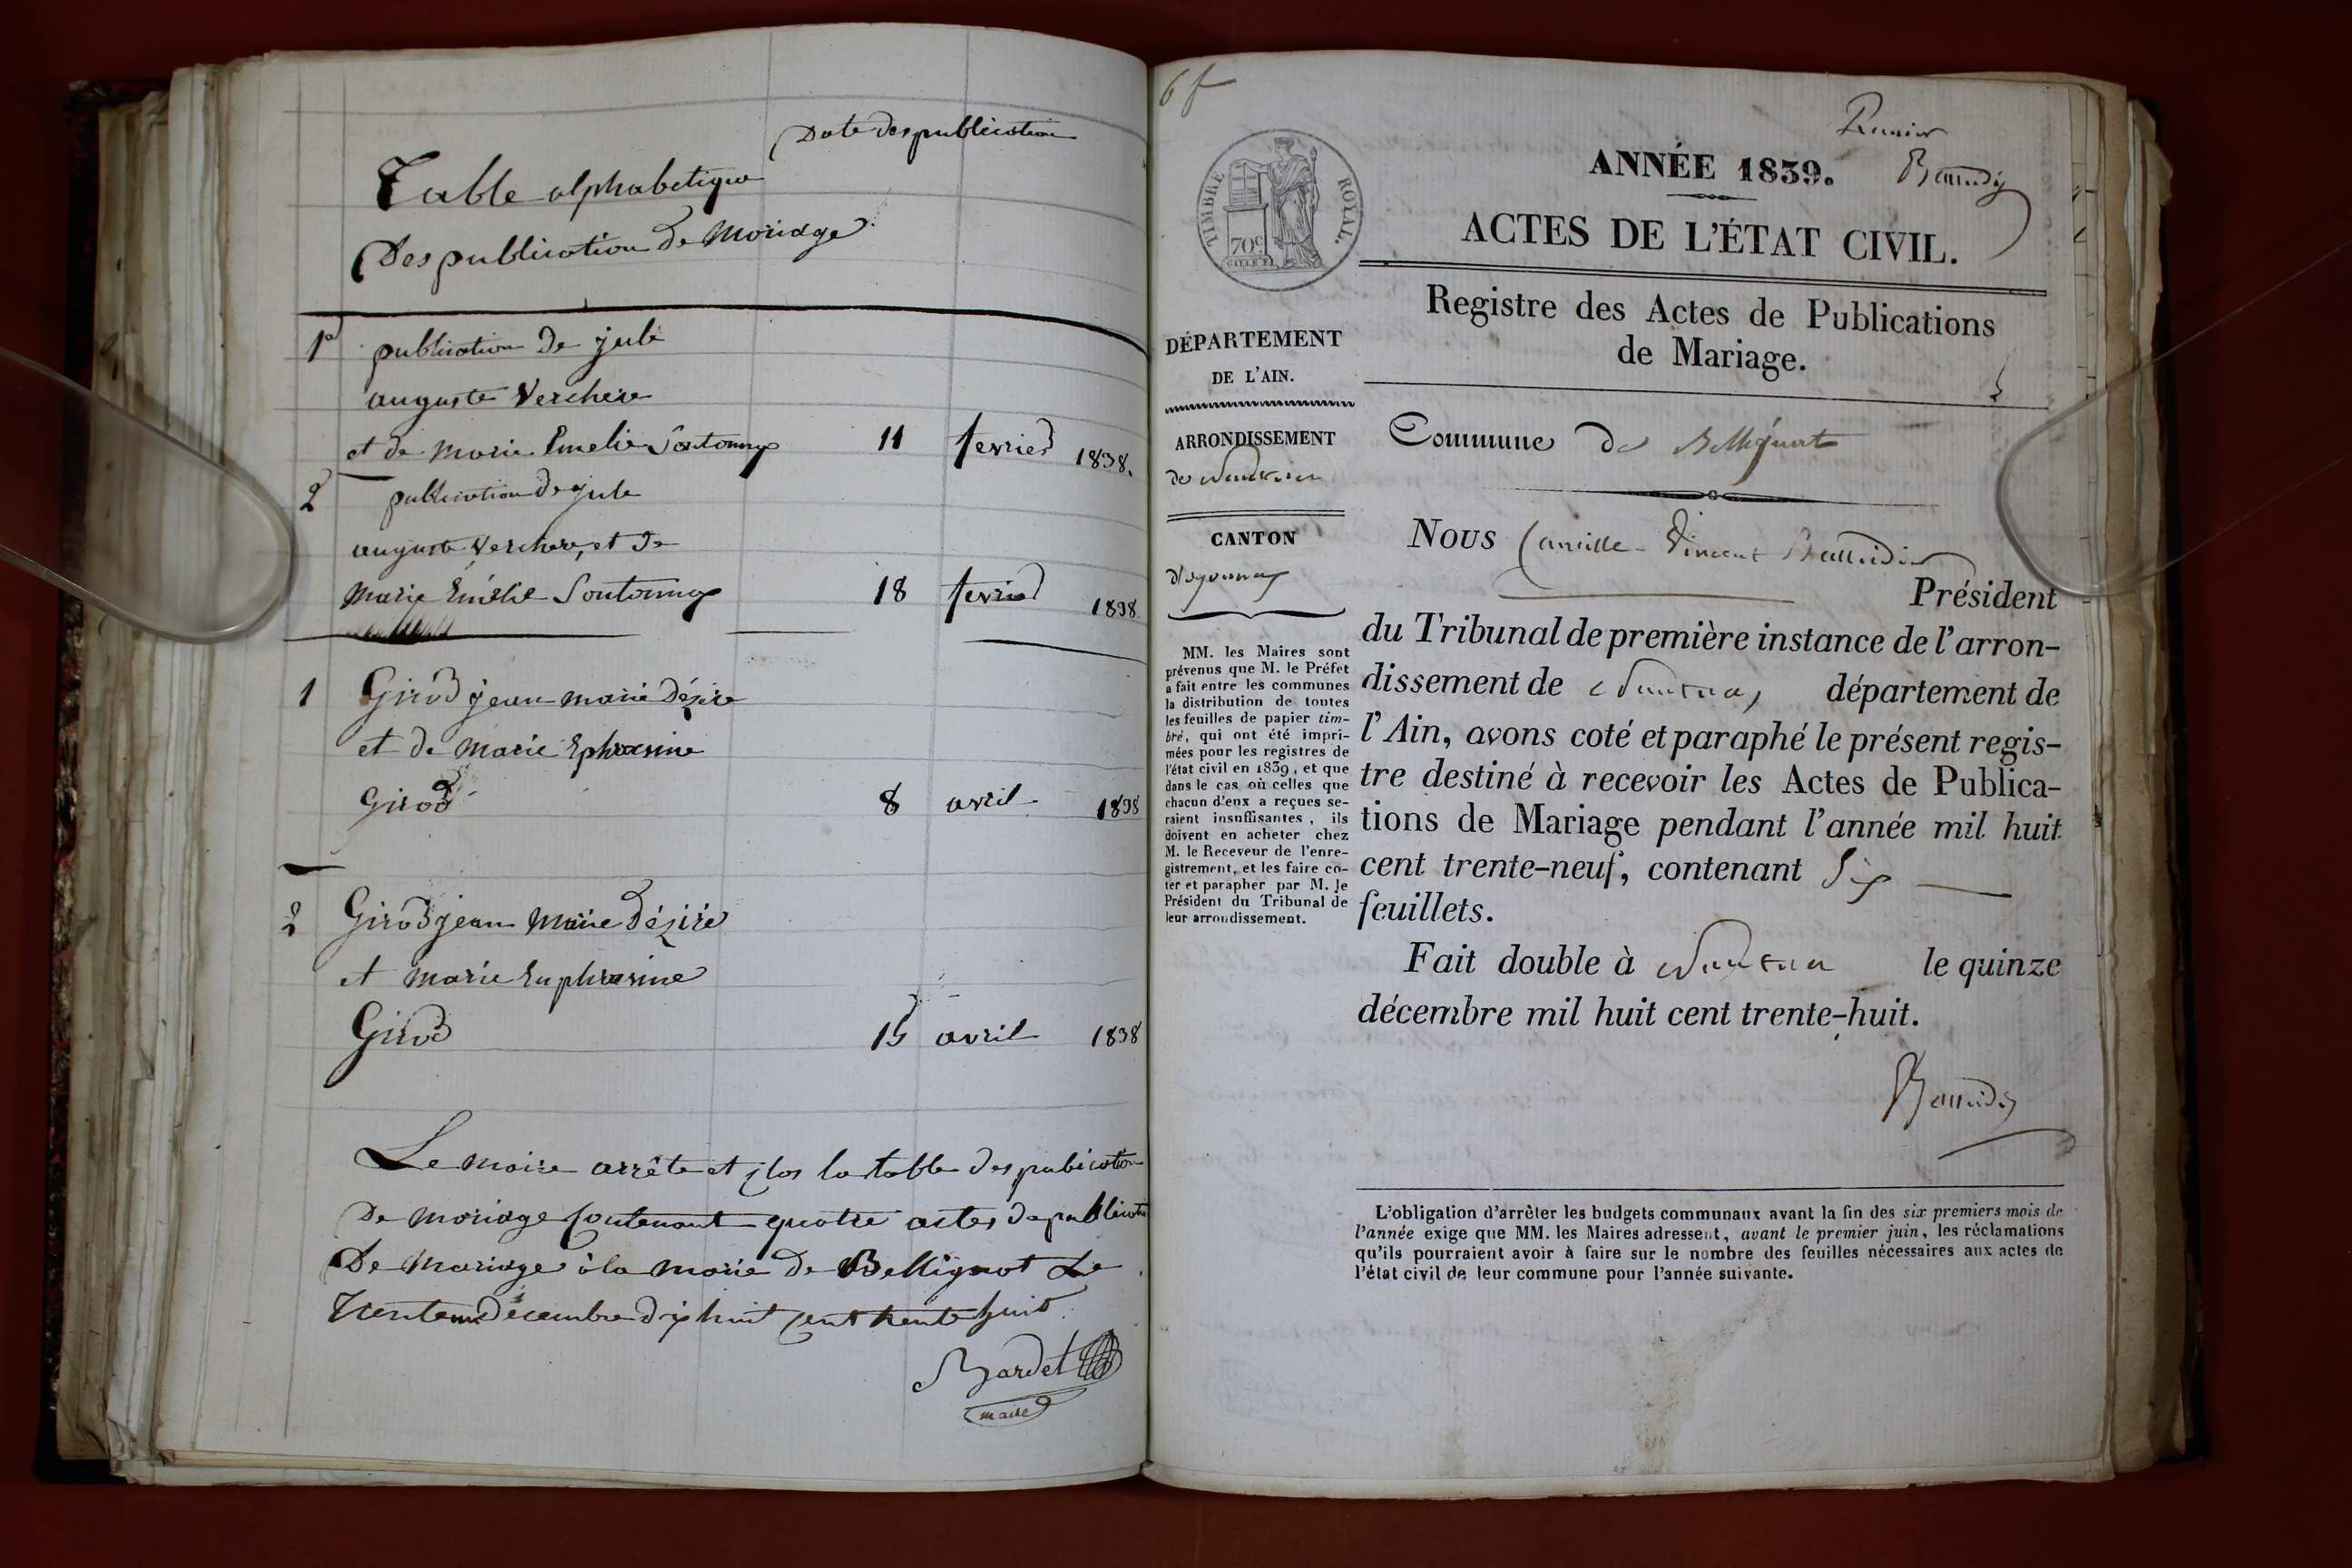 Date des publication
Table alphabetique
Des publication de Mariage
1e publication de jule
auguste Verchere
et de Marie Emelie Sontonnax 11 fevrier 1838.
2 publication de jule
auguste Verchere, et de
Marie Emélie Sontonnax 18 fevrier 1838
1 Girod jean marie Désiré
et de Marie Ephrasine
Girod 8 avril 1838
2 Girod jean Marie Désiré
et Marie Euphrasine
Girod 15 avril 1838
Le maire arrête et clos la table des publication
De mariage contenant quatre actes de publication
De Mariage à la Marie de Bellignat Le
Trente un décembre dix huit cent trente huit.
Bardet
maire
6 f
Premier
ANNÉE 1839.
ACTES DE L'ÉTAT CIVIL.
TIMBRE ROYAL.
70c
Registre des Actes de Publications
de Mariage.
DÉPARTEMENT
DE L'AIN.
ARRONDISSEMENT
de Nantua
CANTON
d'oyonnax
MM. les Maires sont
prévenus que M. le Préfet
a fait entre les communes
la distribution de toutes
les feuilles de papier tim-
bré, qui ont été impri-
mées pour les registres de
l'état civil en 1839, et que
dans le cas où celles que
chacun d'eux a reçues se-
raient insuffisantes, ils
doivent en acheter chez
M. le Receveur de l'enre-
gistrement, et les faire co-
ter et parapher par M. le
Président du Tribunal de
leur arrondissement.
Commune de Bellignat
Nous Camille-Vincent
Président
du Tribunal de première instance de l'arron-
dissement de Nantua, département de
l'Ain, avons coté et paraphé le présent regis-
tre destiné à recevoir les Actes de Publica-
tions de Mariage pendant l'année mil huit
cent trente-neuf, contenant Six
feuillets.
Fait double à Nantua le quinze
décembre mil huit cent trente-huit.
L'obligation d'arrêter les budgets communaux avant la fin des six premiers mois de
l'année exige que MM. les Maires adressent, avant le premier juin, les réclamations
qu'ils pourraient avoir à faire sur le nombre des feuilles nécessaires aux actes de
l'état civil de leur commune pour l'année suivante.